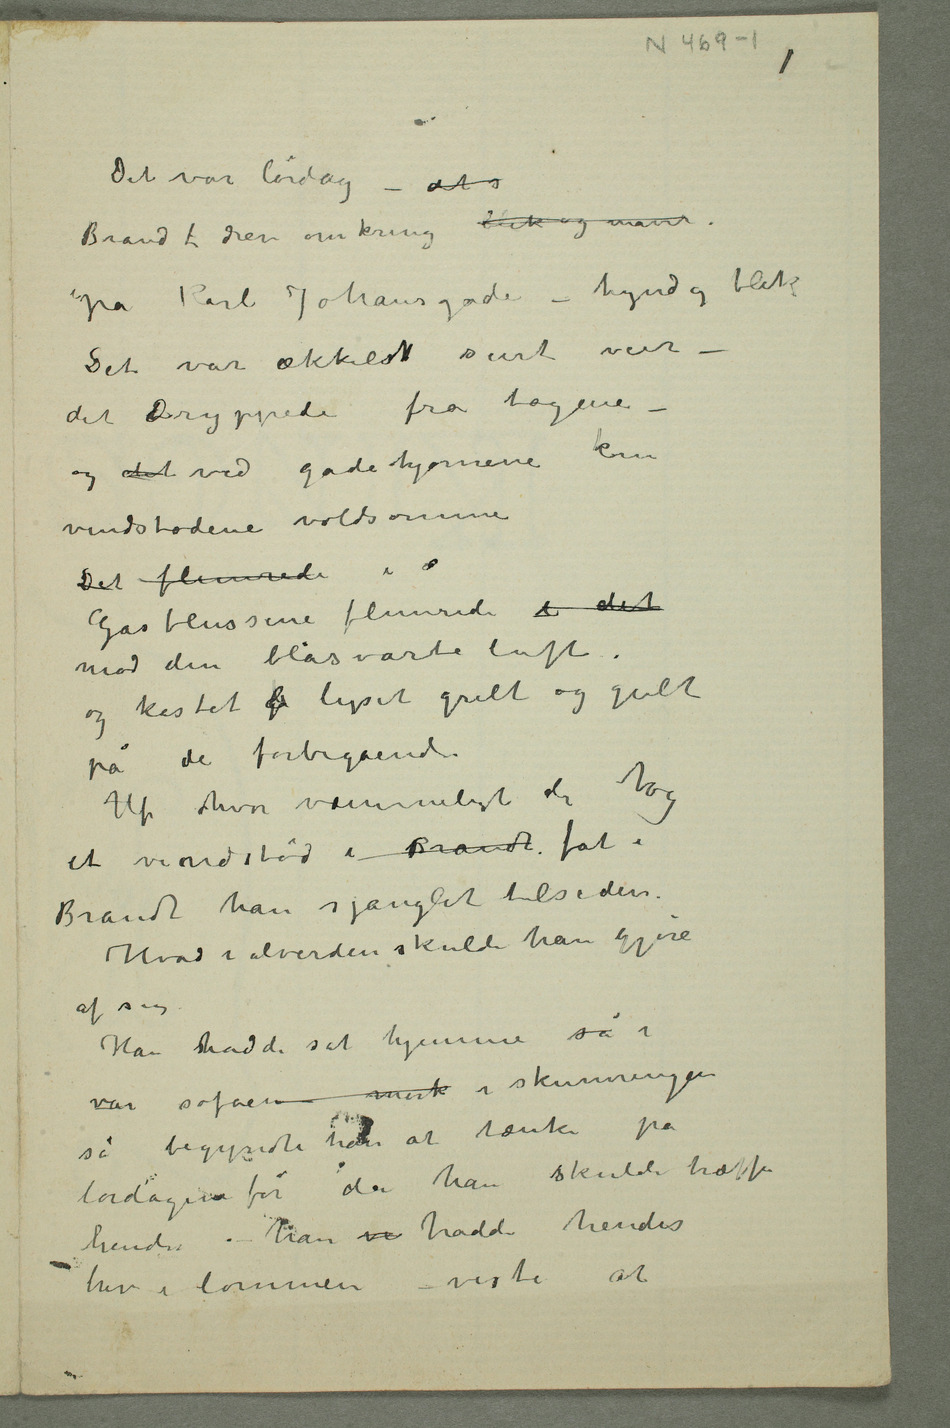 N 469-1
1
Det var lørdag – det s
Brandt drev omkring blek og maver.
på Karl Johansgade – tynd og blek
Det var ækkelst surt veir –
det Dryppede fra tagene –
og det ved gadehjørnene kom
vindstødene voldsomme
Det flimrede i s
Gasblussene flimrede i det
mod den blåsvarte luft.
og kastet lyset grelt og gult
på de forbigående
Uf hvor væmmeligt der tog
et vindstød i Brandt. fat i
Brandt han sjanglet tilsiden.
Hvad i alverden skulde han gjøre
af sig
Han hadde sat hjemme så i
var sofaen – mørk i skumringen
så begyndte han at tænke på
lørdagene før da han skulde træffe
hende – han vi hadde hendes
brev i lommen – viste at